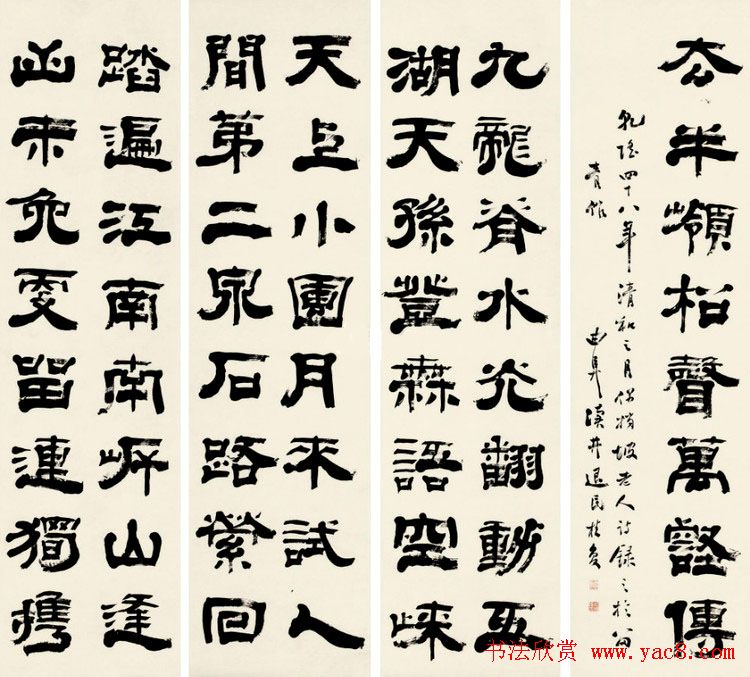 踏遍江南南岸山逢
山未免更留連獨攜
天上小團月來試人
間第二泉石路縈回
九龍脊水光翻動五
湖天孫登無語空歸
去半嶺松聲萬壑傳
乾隆四十八年清和之月偶坡老人詩錄之於
青 曲阜瀆井退民桂馥
书法欣赏 www.yac8.com